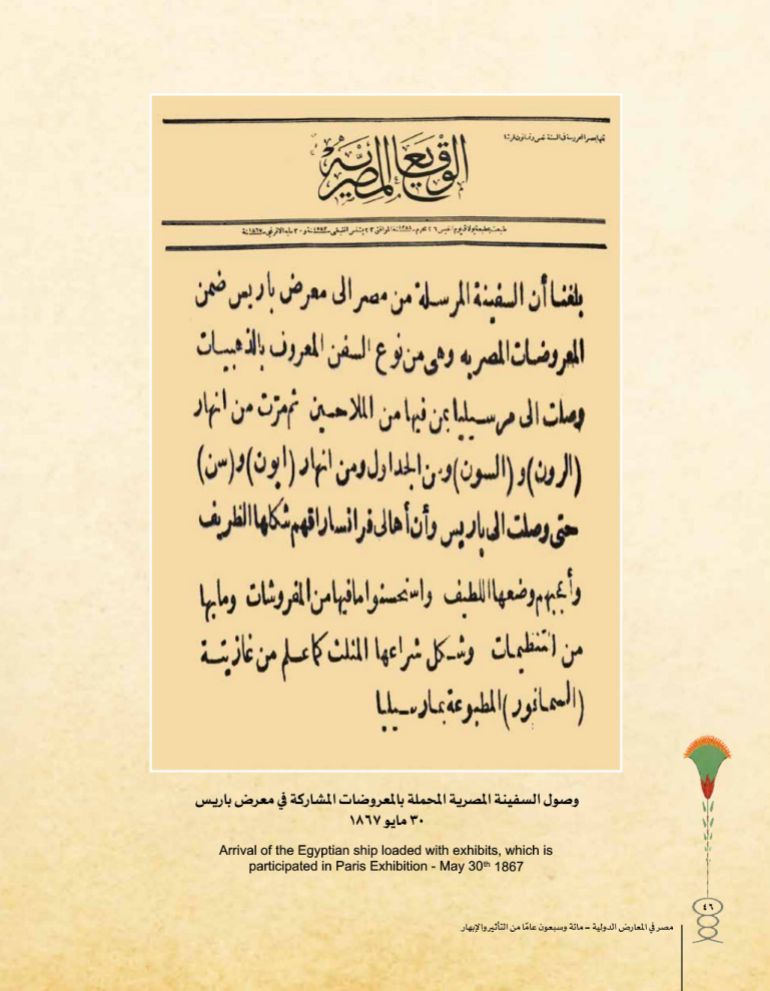 الوقايع المصرية
بلغنا أن السفينة المرسلة من مصر الى معرض باريس ضمن
المعروضات المصريه وهى من نوع السفن المعروف بالذهبيات
وصلت الى مرسيليا بمن فيها من الملاحين ثم مرّت من انهار
(الرون) و (السون) ومن الجداول ومن انهار (ايون) و (سن)
حتى وصلت الى باريس وأن أهالى فرانسا راقهم شكلها الظريف
وأعجبهم وضعها اللطيف واستحسنوا مافيها من المفروشات ومابها
من التنظيمات وشكل شراعها المثلث كما علم من غازيتة
المطبوعة بمارسيليا
وصول السفينة المصرية المحملة بالمعروضات المشاركة في معرض باريس
٣٠ مايو ١٨٦٧
Arrival of the Egyptian ship loaded with exhibits, which is
participated in Paris Exhibition - May 30th 1867
٤٦
مصر في المعارض الدولية – مائة وسبعون عامًا من التأثير والإبهار